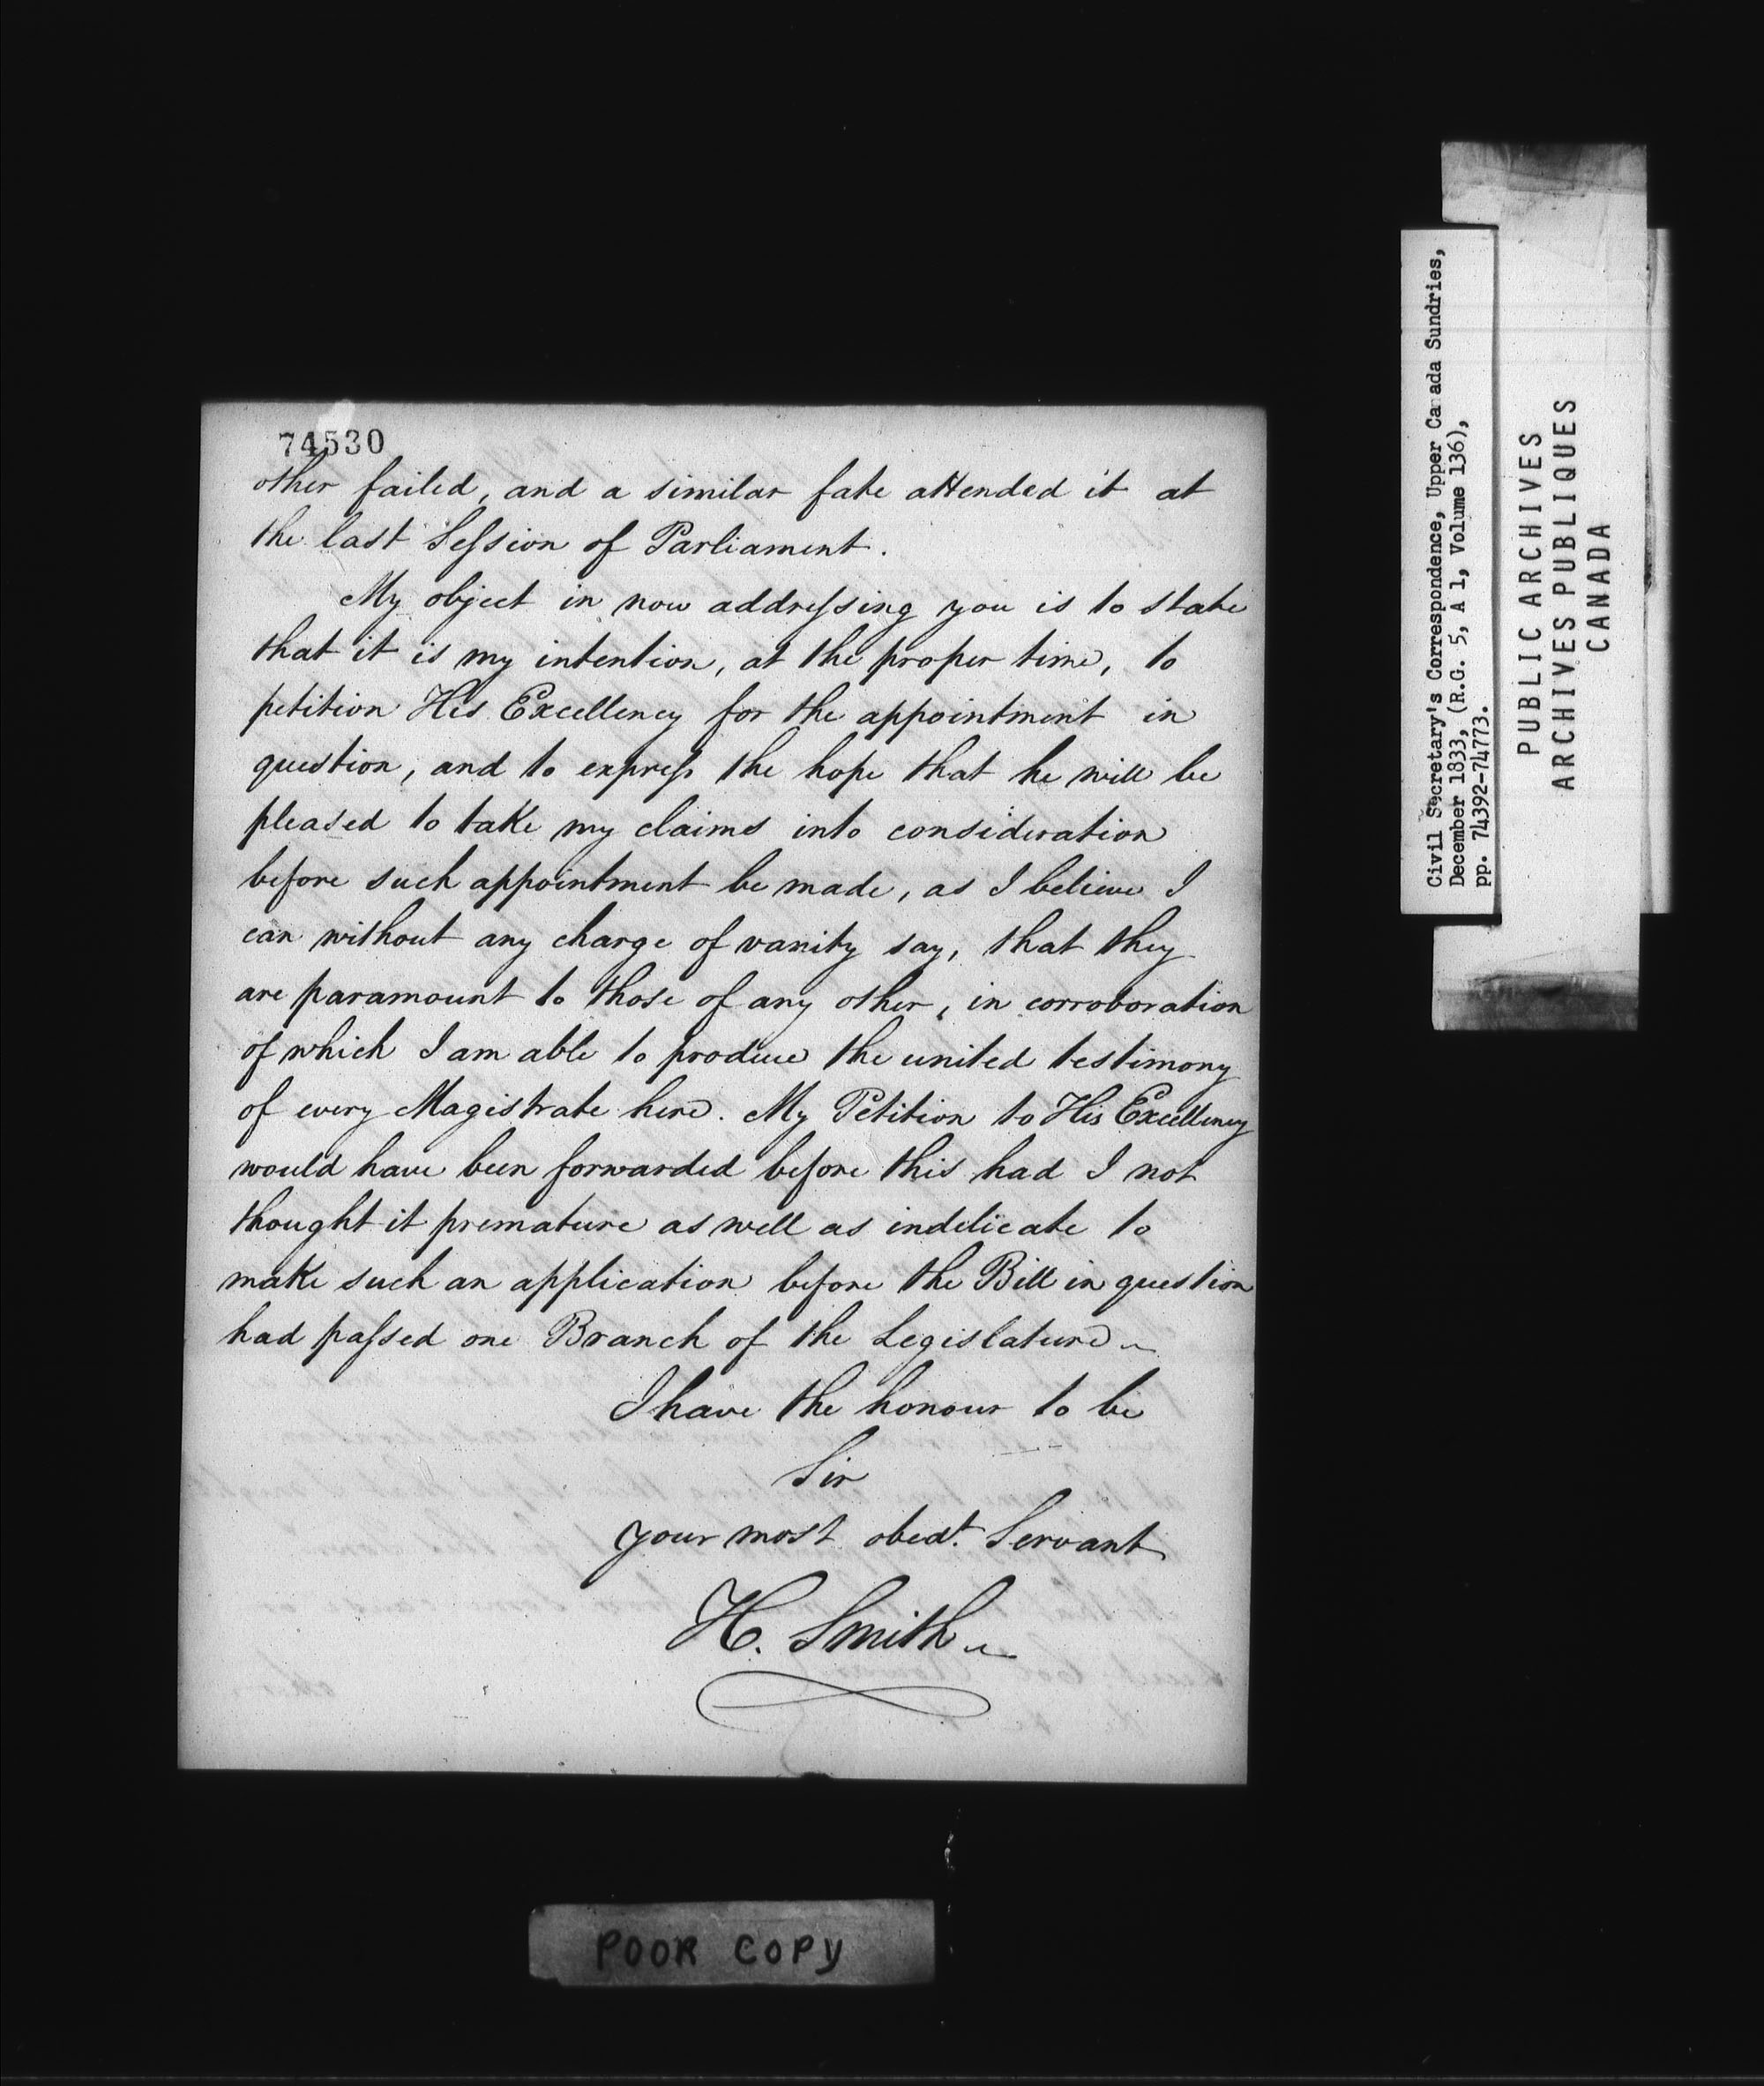 74530
other failed, and a similar fate attended it at
the last Session of Parliament.
My object in now addressing you is to state
that it is my intention, at the proper time, to
petition His Excellency for the appointment in
question, and to express the hope that he will be
pleased to take my claims into consideration
before such appointment be made, as I believe I
can without any charge of vanity say, that they
are paramount to those of any other, in corroboration
of which I am able to produce the united testimony
of every Magistrate here. My Petition to His Excellency
would have been forwarded before this had I not
thought it premature as well as indelicate to
make such an application before the Bill in question
had passed one Branch of the Legislature
I have the honour to be
Sir
your most obedt. Servant
H. Smith
POOR COPY
Civil Secretary's Correspondence, Upper Canada Sundries,
December 1833, (R.G. 5, A 1, Volume 136),
pp. 74392-74773.
PUBLIC ARCHIVES
ARCHIVES PUBLIQUES
CANADA